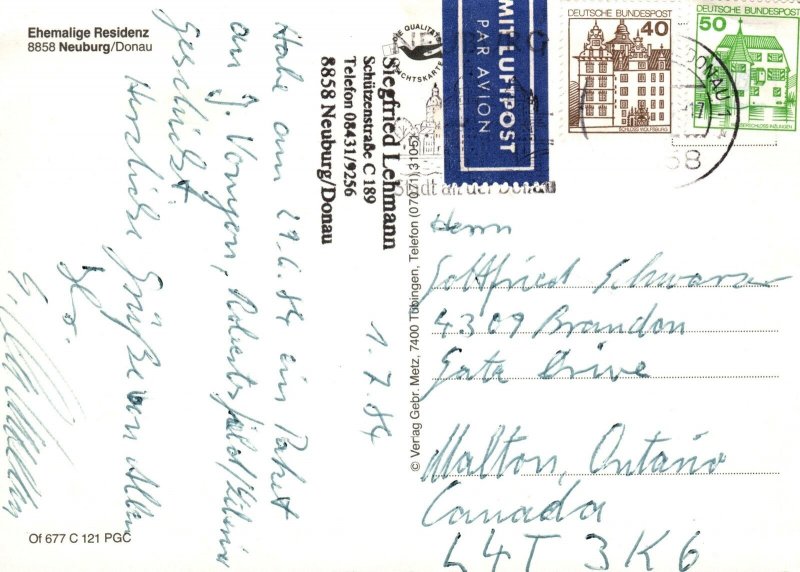 Ehemalige Residenz
8858 Neuburg/Donau
Habe am 29.6.84 ein Paket
an J. Vonyon,
geschickt.
Herzliche Grüße von Allen
Ihr
1.7.84
Of 677 C 121 PGC
Siegfried Lehmann
Schützenstraße C 189
Telefon 08431/9256
8858 Neuburg/Donau
© Verlag Gebr. Metz, 7400 Tübingen, Telefon (07071) 31051
MIT LUFTPOST
PAR AVION
Stadt an der Donau
DEUTSCHE BUNDESPOST
40
SCHLOSS WOLFSBURG
DEUTSCHE BUNDESPOST
50
WASSERSCHLOSS INZLINGEN
Herrn
Gottfried Schwarzer
4309 Brandon
Gate Drive
Malton, Ontario
Canada
L4T 3K6